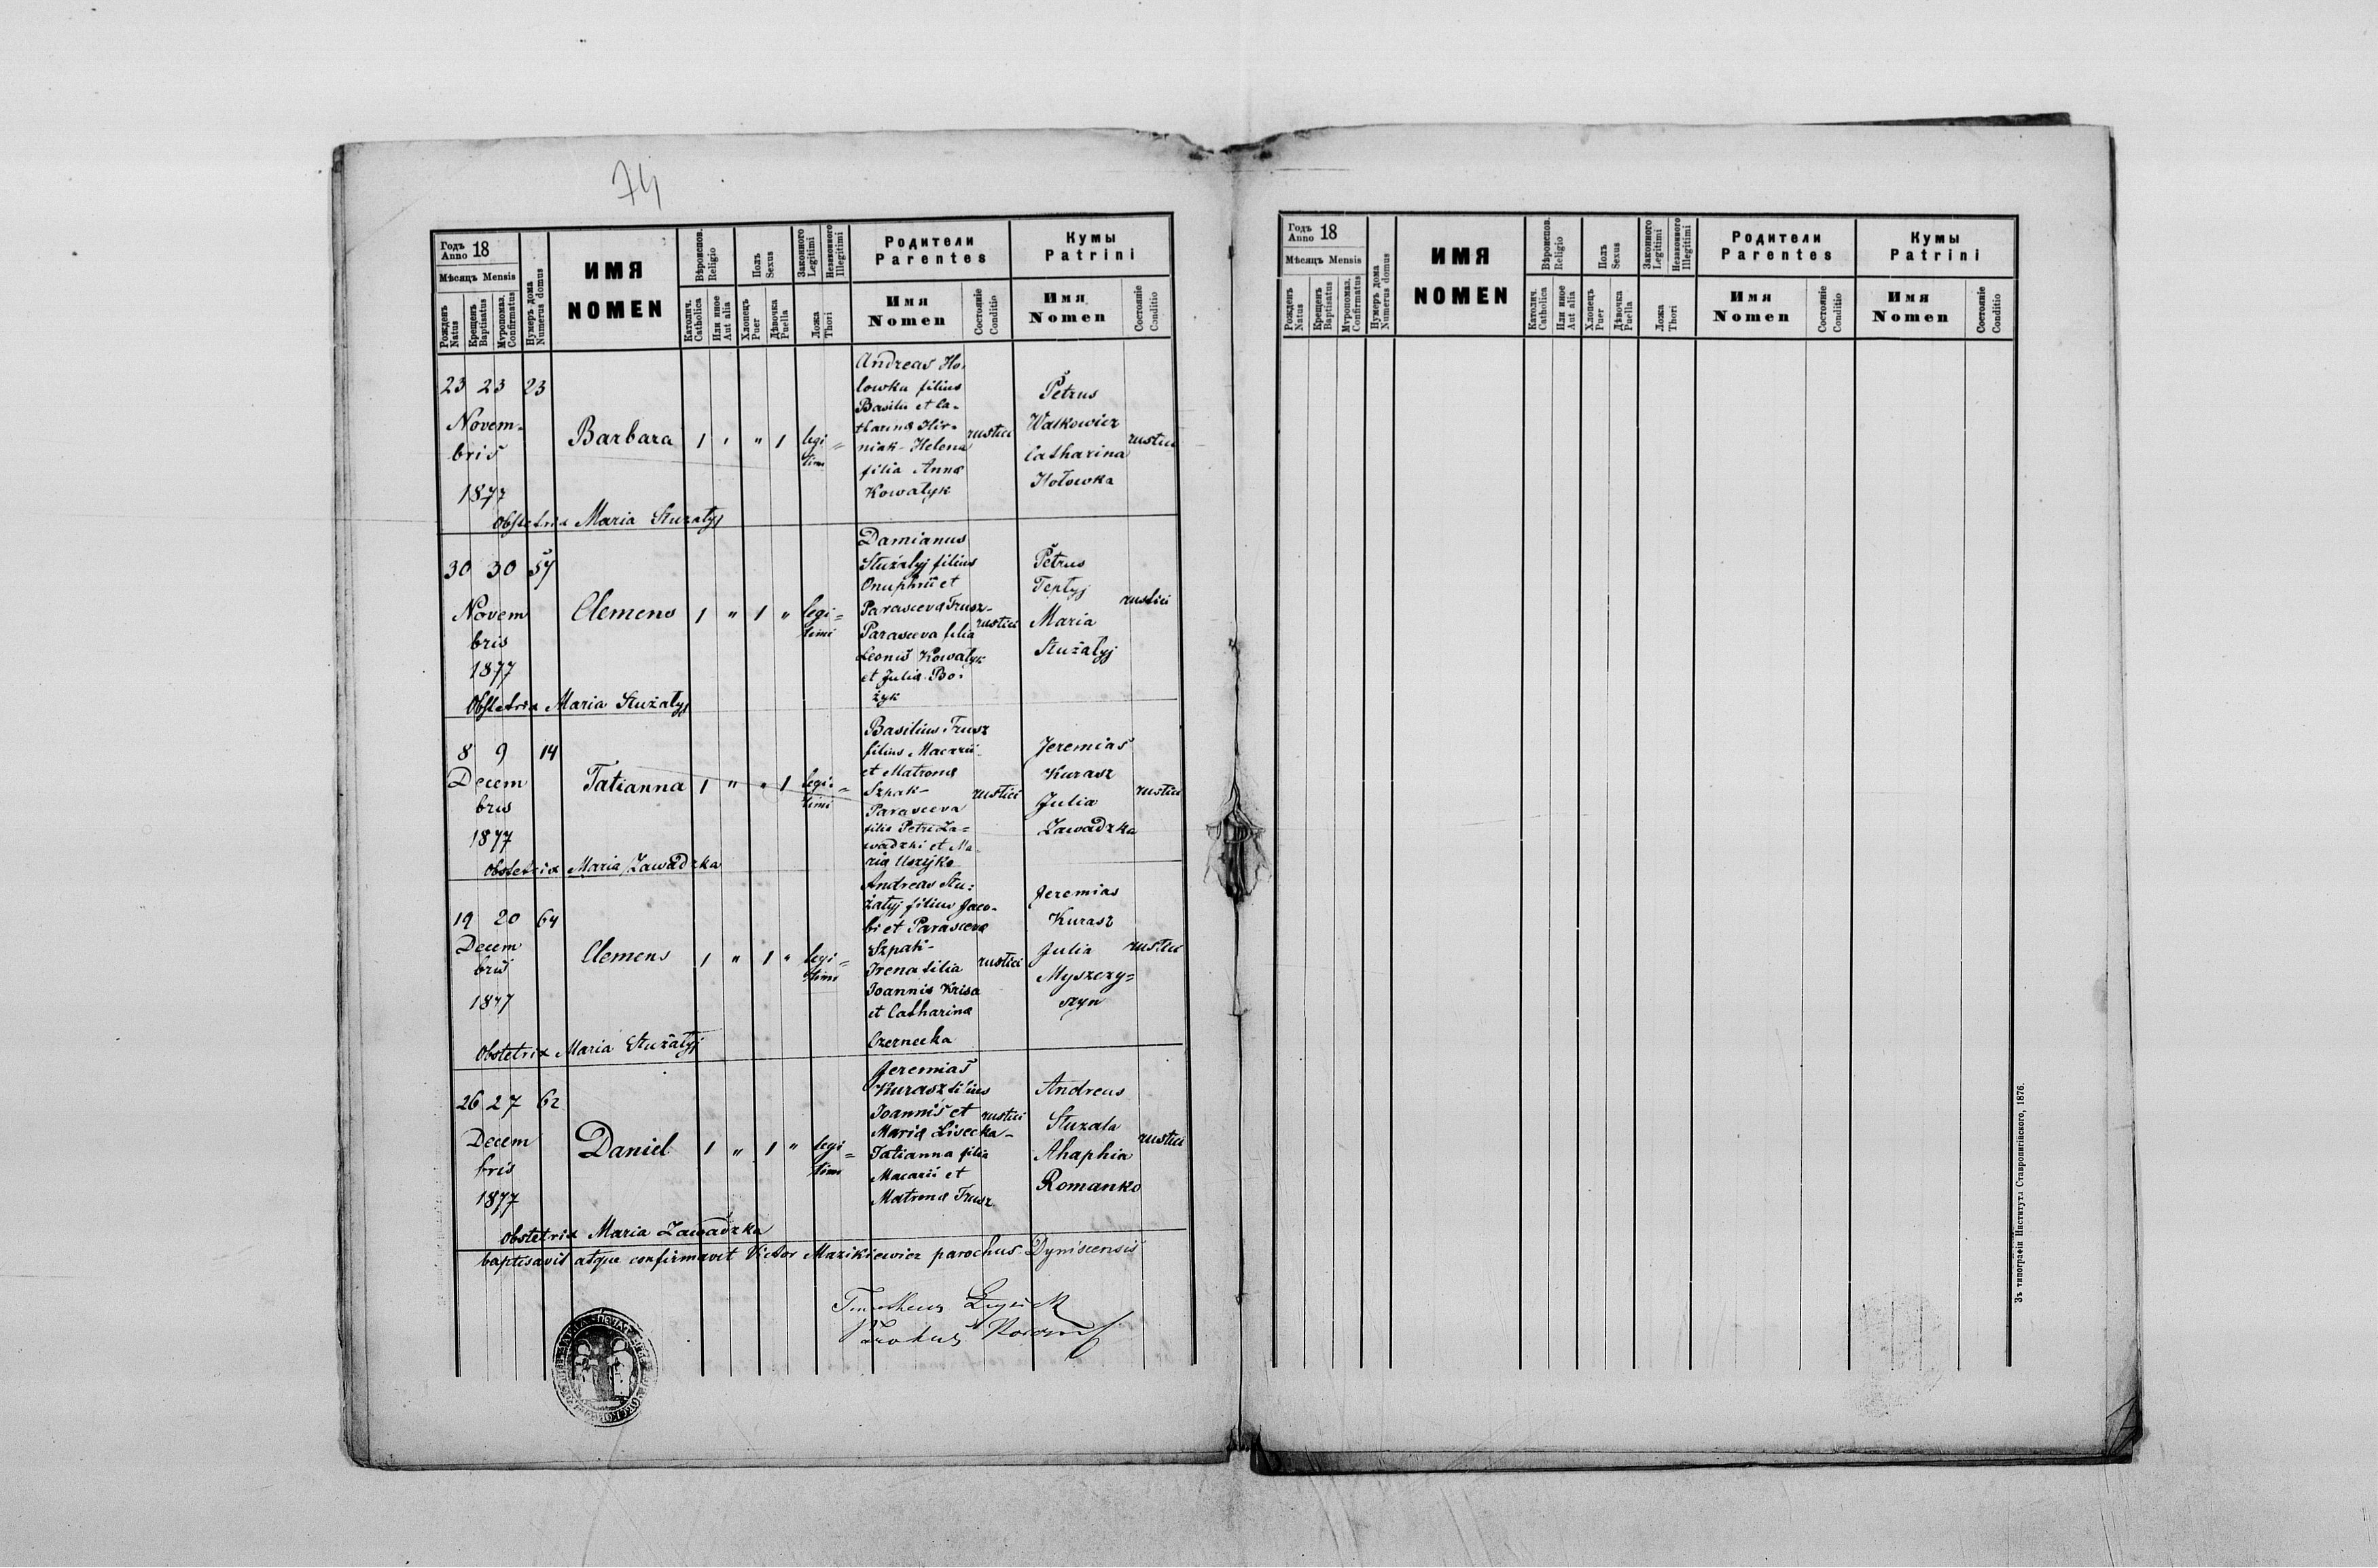 74
Годъ Anno 18
Мѣсяцъ Mensis
Рожденъ Natus
Крещенъ Baptisatus
Мѵропомаз. Confirmatus
Нумеръ дома Numerus domus
ИМЯ
NOMEN
Вѣроиспов. Religio
Католич. Catholica
Или иное Aut alia
Полъ Sexus
Хлопецъ Puer
Дѣвочка Puella
Законного Legitimi
Незаконного Illegitimi
Ложа Thori
Родители
Parentes
Имя
Nomen
Состояніе Conditio
Кумы
Patrini
Имя
Nomen
Состояніе Conditio
23 23 23
Novem-
bris
1877
Barbara 1 " " 1 legi = timi
Andreas Ho-
lowka filius
Basilii et Ca-
tharina Hir-
niak - Helena
filia Anna
Kowalyk
rustici
Petrus
Walkowicz
Catharina
Hołowka
rustici
Obstetrix Maria Stużałyj
30 30 57
Novem
bris
1877
Clemens 1 " 1 " legi- = timi
Damianus
Stużałyj filius
Onuphrii et
Parasceva Trusz-
Parasceva filia
Leonis Kowalyk
et Julia Bo-
żyk
rustici
Petrus
Tepłyj
Maria
Stużałyj
rustici
Obstetrix Maria Stużałyj
8 9 14
Decem
bris
1877
Tatianna 1 " " 1 legi- = timi
Basilius Trusz
filius Macarii
et Matrona
Szpak-
Parasceva
filia Petri Za-
wadzki et Ma-
ria
rustici
Jeremias
Kurasz
Julia
Zawadzka
rustici
Obstetrix Maria Zawadzka
19 20 64
Decem
bris
1877
Clemens 1 " 1 " legi- = timi
Andreas Stu-
żałyj filius Jaco-
bi et Parasceva
Szpak-
Irena filia
Joannis Krisa
et Catharina
Czernecka
rustici
Jeremias
Kurasz
Julia
Myszczy=
szyn
rustici
Obstetrix Maria Stużałyj
26 27 62
Decem
bris
1877
Daniel 1 " 1 " legi = timi
Jeremias
Kurasz filius
Joannis et
Maria Lisecka-
Tatianna filia
Macarii et
Matrona Trusz
rustici
Andreas
Stuzala
Ahaphia
Romanko
rustici
Obstetrix Maria Zawadzka
baptisavit atque confirmavit Victor Mazikiewicz parochus Dyniscensis
Годъ Anno 18
Мѣсяцъ Mensis
Рожденъ Natus
Крещенъ Baptisatus
Мѵропомаз. Confirmatus
Нумеръ дома Numerus domus
ИМЯ
NOMEN
Вѣроиспов. Religio
Католич. Catholica
Или иное Aut alia
Полъ Sexus
Хлопецъ Puer
Дѣвочка Puella
Законного Legitimi
Незаконного Illegitimi
Ложа Thori
Родители
Parentes
Имя
Nomen
Состояніе Conditio
Кумы
Patrini
Имя
Nomen
Состояніе Conditio
Зъ типографіи Института Ставропигійского, 1876.